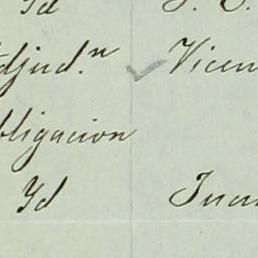 Id
djud.n Vicen
bligacion
Id Juan